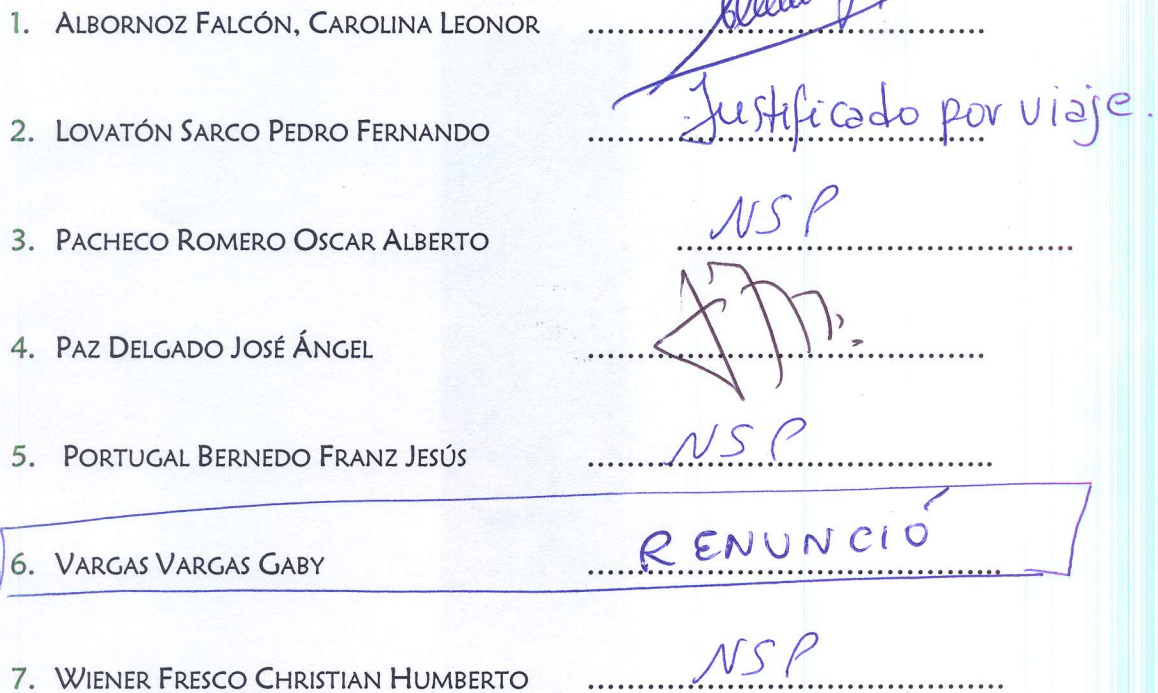 1. ALBORNOZ FALCÓN, CAROLINA LEONOR ........................................
2. LOVATÓN SARCO PEDRO FERNANDO Justificado por viaje.
3. PACHECO ROMERO OSCAR ALBERTO NSP
4. PAZ DELGADO JOSÉ ÁNGEL ........................................
5. PORTUGAL BERNEDO FRANZ JESÚS NSP
6. VARGAS VARGAS GABY RENUNCIÓ
7. WIENER FRESCO CHRISTIAN HUMBERTO NSP